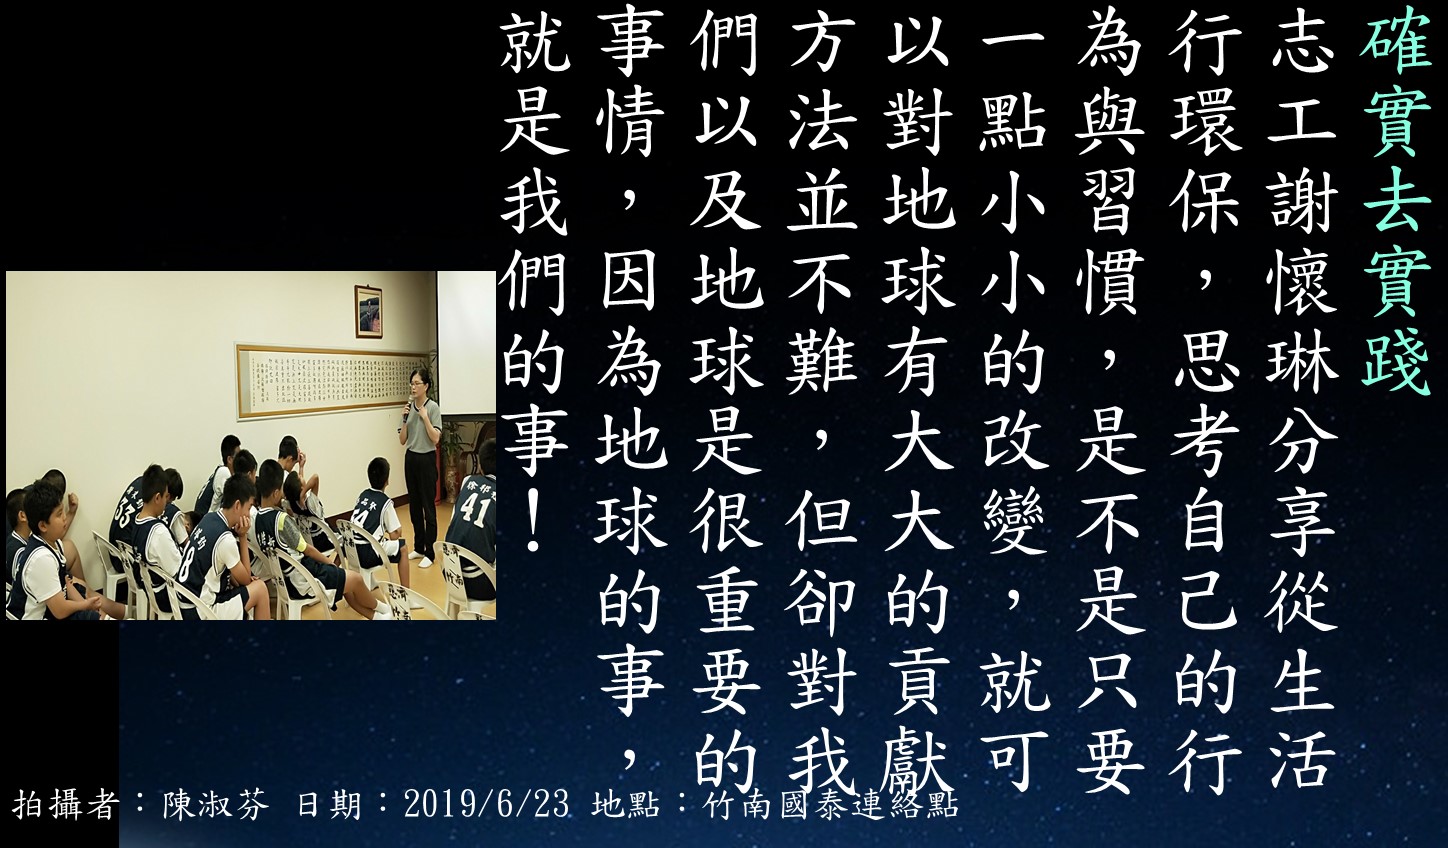 確實去實踐
志工謝懷琳分享從生活
行環保，思考自己的行
為與習慣，是不是只要
一點小小的改變，就可
以對地球有大大的貢獻
方法並不難，但卻對我
們以及地球是很重要的
事情，因為地球的事，
就是我們的事！
33
8
41
拍攝者：陳淑芬 日期：2019/6/23 地點：竹南國泰連絡點